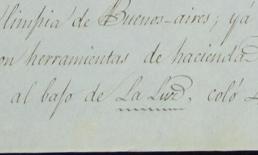 limpia de Buenos-aires; yá
on herramientas de hacienda
al bajo de La Luz, coló